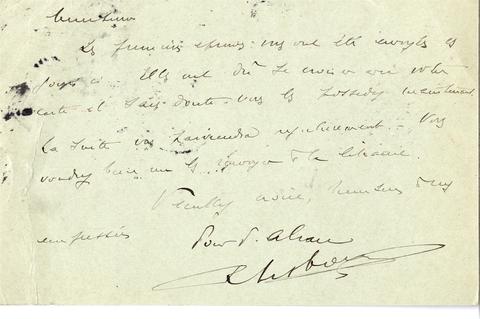 Monsieur
Les premières épreuves vous ont été envoyées
. Elles ont dû se croiser avec votre
carte et sans doute vous les possédez maintenant.
La suite vous parviendra régulièrement. Vous
voudrez bien me les renvoyer à la librairie.
Veuillez croire, Monsieur
empressés
Pour F. Alcan